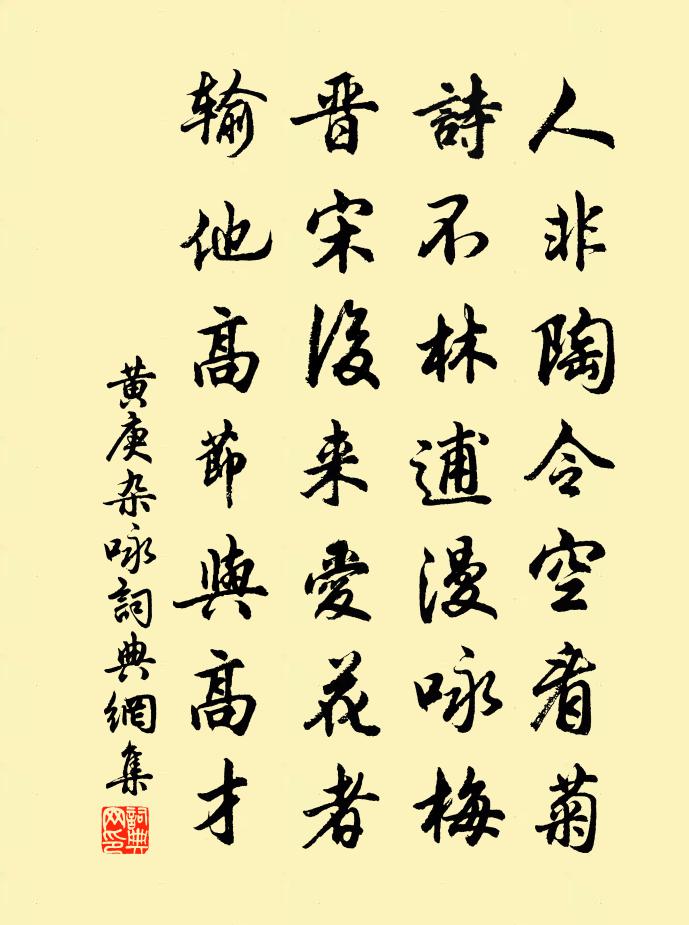 人非陶令空看菊
詩不林逋漫咏梅
晋宋後来愛花者
输他高節與高才
黄庚杂咏詞典網集
詞典网印